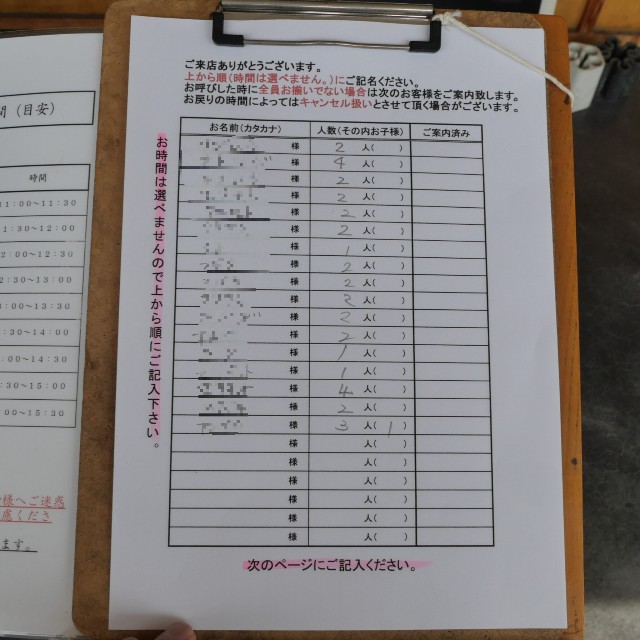 ご来店ありがとうございます。
上から順(時間は選べません。)にご記名ください。
お呼びした時に全員お揃いでない場合は次のお客様をご案内致します。
お戻りの時間によってはキャンセル扱いとさせて頂く場合がございます。
お時間は選べませんので上から順にご記入下さい。
お名前(カタカナ) 人数(その内お子様) ご案内済み
様 2 人( )
様 4 人( )
様 2 人( )
様 2 人( )
様 2 人( )
様 2 人( )
様 1 人( )
様 2 人( )
様 2 人( )
様 人( )
様 2 人( )
様 2 人( )
様 1 人( )
様 1 人( )
様 4 人( )
様 2 人( )
様 3 人( 1 )
様 人( )
様 人( )
様 人( )
様 人( )
様 人( )
様 人( )
次のページにご記入ください。
(目安)
時間
11:00~11:30
1:30~12:00
2:00~12:30
2:30~13:00
3:00~13:30
3:30~14:00
4:00~14:30
4:30~15:00
5:00~15:30
様へご迷惑
慮くださ
ます。